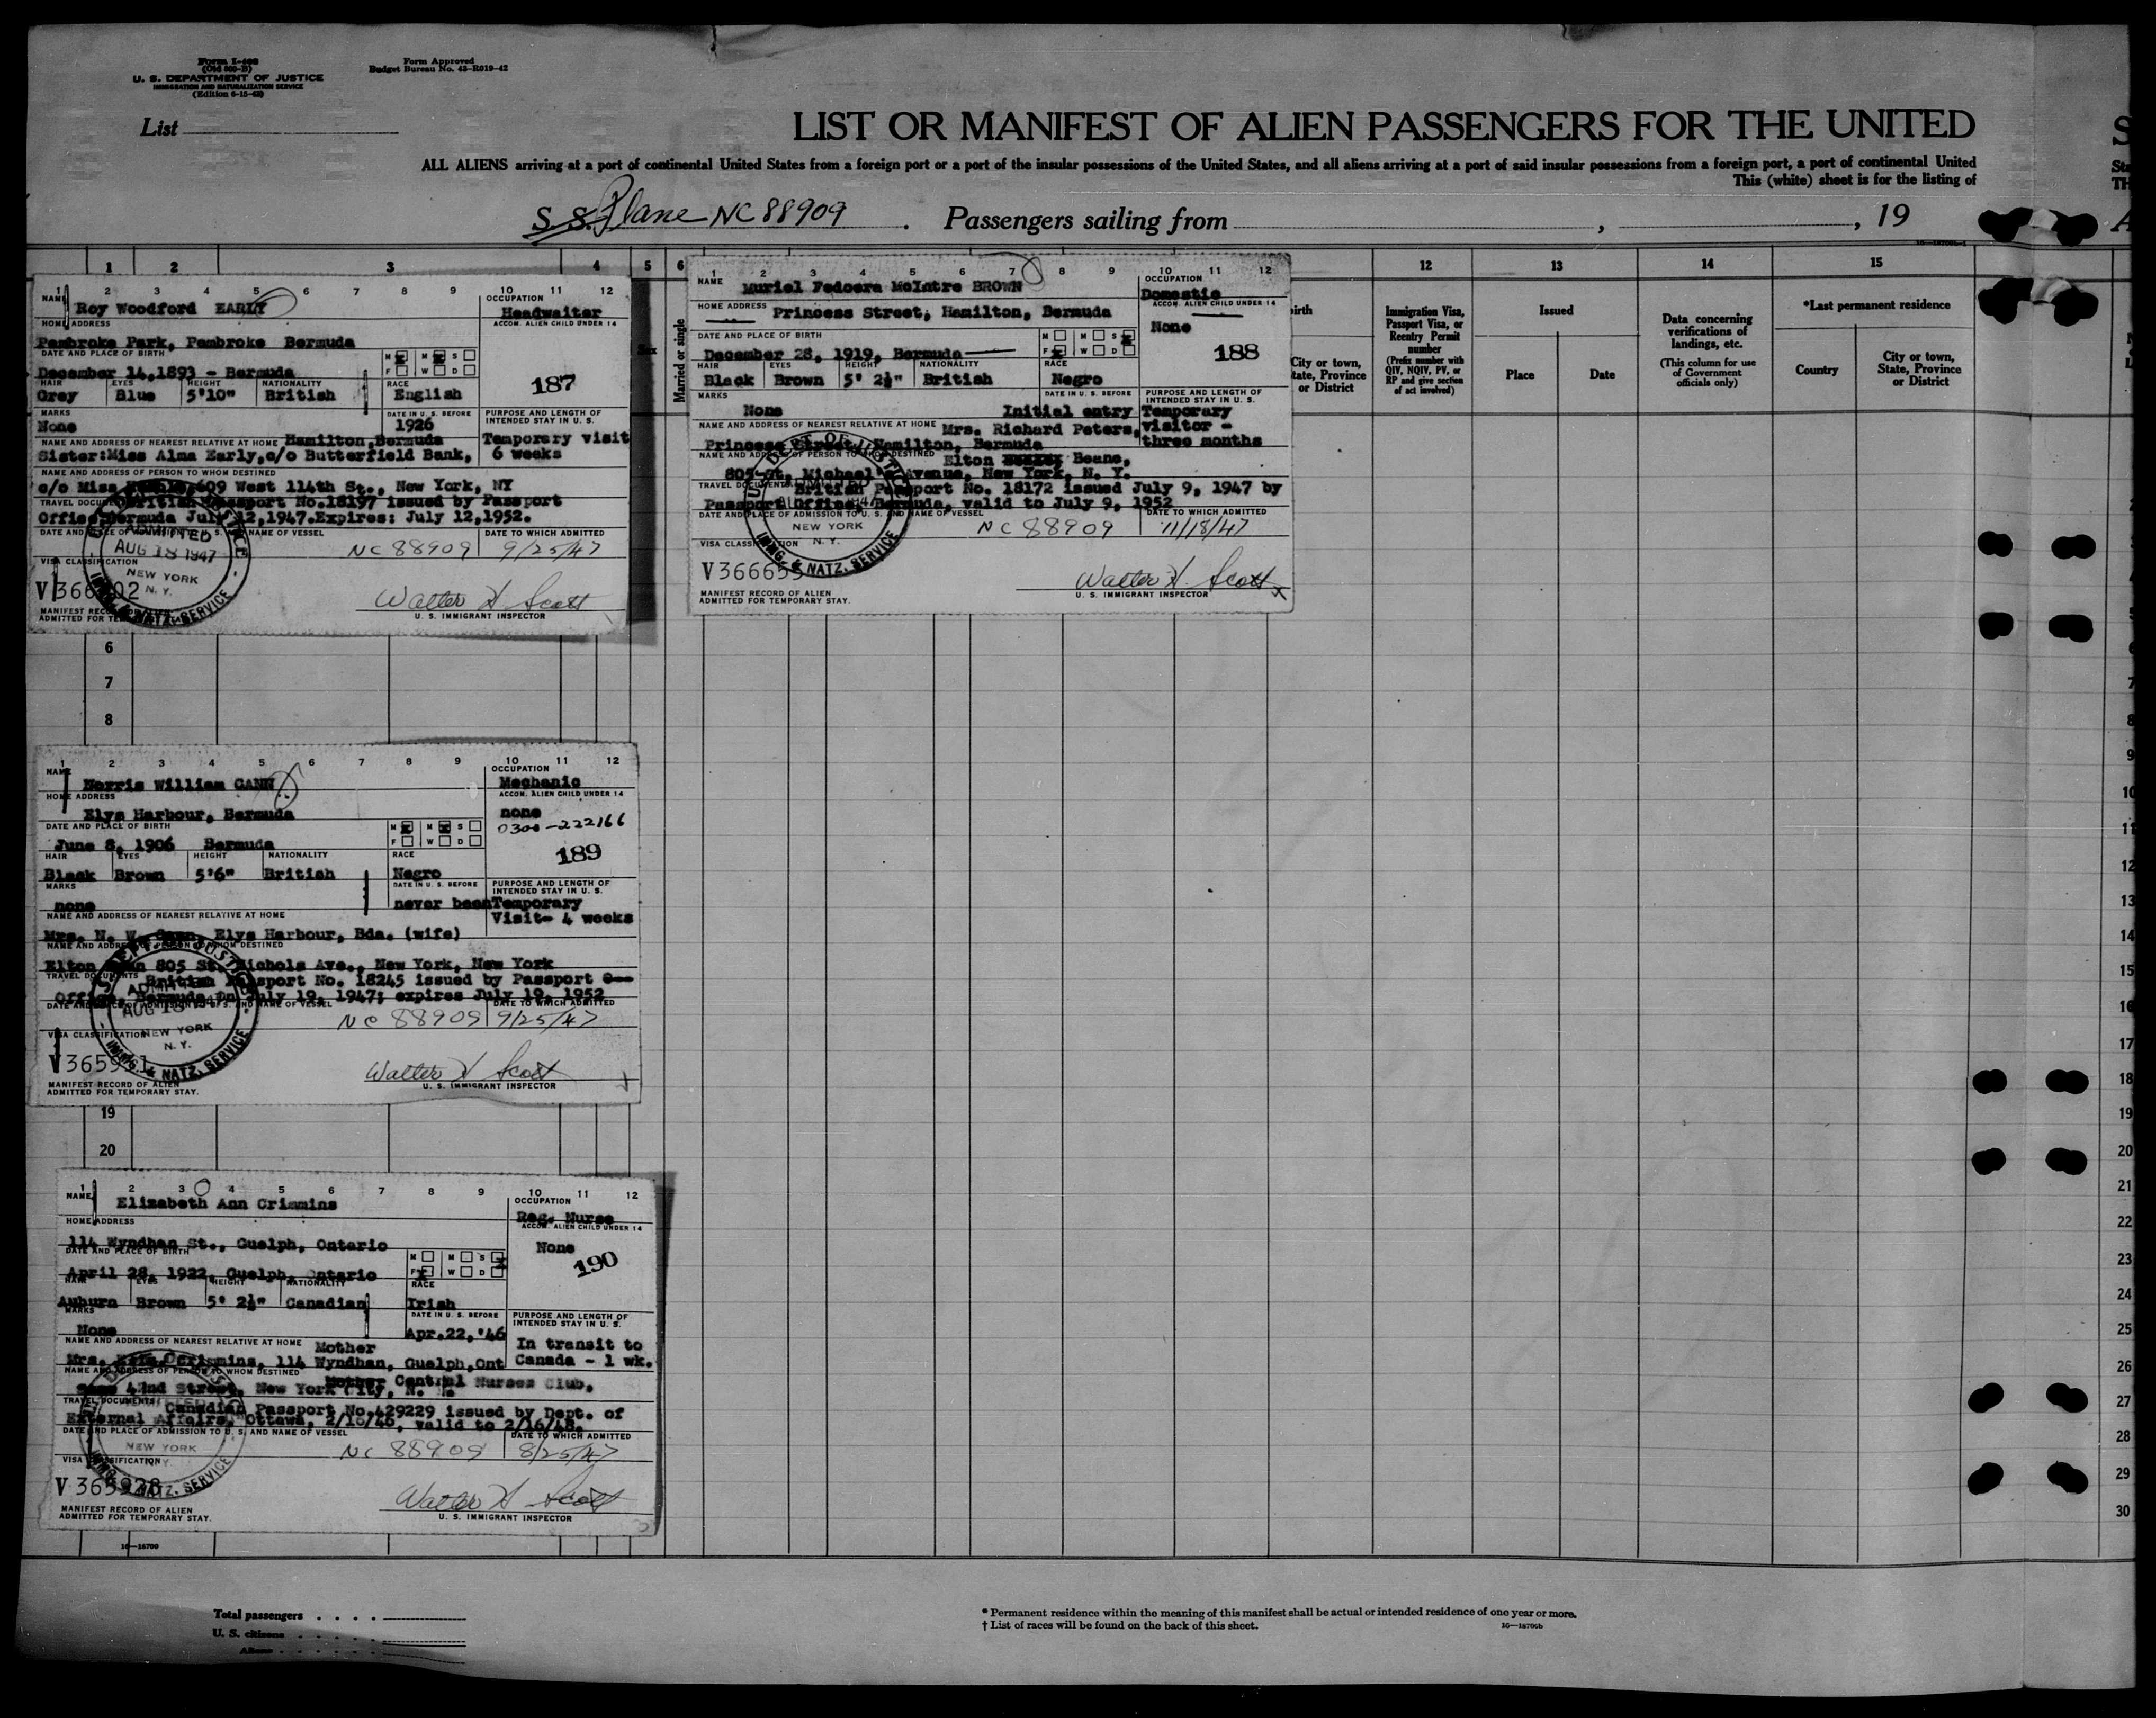 Form I-408
(Old 500-B)
U. S. DEPARTMENT OF JUSTICE
IMMIGRATION AND NATURALIZATION SERVICE
(Edition 6-15-42)
Form Approved
Budget Bureau No. 43-R019-42
List
LIST OR MANIFEST OF ALIEN PASSENGERS FOR THE UNITED
ALL ALIENS arriving at a port of continental United States from a foreign port or a port of the insular possessions of the United States, and all aliens arriving at a port of said insular possessions from a foreign port, a port of continental United
This (white) sheet is for the listing of
S. S. Plane NC 88909 . Passengers sailing from , , 19
1 2 3 4 5 6 12 13 14 15
Sex
Married or single
City or town, State, Province or District
Immigration Visa, Passport Visa, or Reentry Permit number
(Prefix number with QIV, NQIV, PV, or RP and give section of act involved)
Issued
Place
Date
Data concerning verifications of landings, etc.
(This column for use of Government officials only)
*Last permanent residence
Country
City or town, State, Province or District
1 2 3 4 5 6 7 8 9 10 11 12
NAME
Roy Woodford EARLY
OCCUPATION
Headwaiter
HOME ADDRESS
ACCOM. ALIEN CHILD UNDER 14
Pembroke Park, Pembroke Bermuda
DATE AND PLACE OF BIRTH
M M S
F W D
December 14,1893 - Bermuda
187
HAIR EYES HEIGHT NATIONALITY RACE
Grey Blue 5'10" British English
MARKS
DATE IN U. S. BEFORE
PURPOSE AND LENGTH OF INTENDED STAY IN U. S.
None 1926
Temporary visit
6 weeks
NAME AND ADDRESS OF NEAREST RELATIVE AT HOME Hamilton,Bermuda
Sister:Miss Alma Early,c/o Butterfield Bank,
NAME AND ADDRESS OF PERSON TO WHOM DESTINED
c/o Miss 609 West 114th St., New York, NY
TRAVEL DOCUMENTS British Passport No.18197 issued by Passport
Office,Bermuda July 12,1947.Expires: July 12,1952.
DATE AND PLACE OF ADMISSION TO U. S. AND NAME OF VESSEL
DATE TO WHICH ADMITTED
ADMITTED
AUG 18 1947
NEW YORK
N. Y.
IMMG. & NATZ. SERVICE
NC 88909 9/25/47
VISA CLASSIFICATION
Walter H Scott
U. S. IMMIGRANT INSPECTOR
MANIFEST RECORD OF ALIEN
ADMITTED FOR TEMPORARY STAY.
1 2 3 4 5 6 7 8 9 10 11 12
NAME
Muriel Fedoera McIntre BROWN
OCCUPATION
Domestic
HOME ADDRESS
Princess Street, Hamilton, Bermuda
ACCOM. ALIEN CHILD UNDER 14
None
DATE AND PLACE OF BIRTH
M M S
F W D
December 28, 1919, Bermuda
188
HAIR EYES HEIGHT NATIONALITY RACE
Black Brown 5' 2½" British Negro
MARKS
DATE IN U. S. BEFORE
PURPOSE AND LENGTH OF INTENDED STAY IN U. S.
None Initial entry
Temporary
visitor -
three months
NAME AND ADDRESS OF NEAREST RELATIVE AT HOME Mrs. Richard Peters,
Princess Street, Hamilton, Bermuda
NAME AND ADDRESS OF PERSON TO WHOM DESTINED Elton Beane,
805 St. Michael's Avenue, New York, N. Y.
TRAVEL DOCUMENTS British Passport No. 18172 issued July 9, 1947 by
Passport Office, Bermuda, valid to July 9, 1952
DATE AND PLACE OF ADMISSION TO U. S. AND NAME OF VESSEL
DATE TO WHICH ADMITTED
NEW YORK
N. Y.
IMMG. & NATZ. SERVICE
NC 88909 11/18/47
VISA CLASSIFICATION
Walter H. Scott
U. S. IMMIGRANT INSPECTOR
MANIFEST RECORD OF ALIEN
ADMITTED FOR TEMPORARY STAY.
6
7
8
1 2 3 4 5 6 7 8 9 10 11 12
NAME
Norris William CANN
OCCUPATION
Mechanic
HOME ADDRESS
ACCOM. ALIEN CHILD UNDER 14
Elys Harbour, Bermuda
none
0300-222166
DATE AND PLACE OF BIRTH
M M S
F W D
June 8, 1906 Bermuda
189
HAIR EYES HEIGHT NATIONALITY RACE
Black Brown 5'6" British Negro
MARKS
DATE IN U. S. BEFORE
PURPOSE AND LENGTH OF INTENDED STAY IN U. S.
none never been
Temporary
Visit- 4 weeks
NAME AND ADDRESS OF NEAREST RELATIVE AT HOME
Mrs. N. W. Cann, Elys Harbour, Bda. (wife)
NAME AND ADDRESS OF PERSON TO WHOM DESTINED
Elton 805 St. Nichols Ave., New York, New York
TRAVEL DOCUMENTS
British Passport No. 18245 issued by Passport
Office, Bermuda on July 19, 1947; expires July 19, 1952
DATE AND PLACE OF ADMISSION TO U. S. AND NAME OF VESSEL
DATE TO WHICH ADMITTED
AUG 18
NEW YORK
N. Y.
IMMG. & NATZ. SERVICE
NC 88909 9/25/47
VISA CLASSIFICATION
Walter H Scott
U. S. IMMIGRANT INSPECTOR
MANIFEST RECORD OF ALIEN
ADMITTED FOR TEMPORARY STAY.
19
20
1 2 3 4 5 6 7 8 9 10 11 12
NAME
Elizabeth Ann Crimmins
OCCUPATION
Reg. Nurse
HOME ADDRESS
ACCOM. ALIEN CHILD UNDER 14
114 Wyndham St., Guelph, Ontario
None
DATE AND PLACE OF BIRTH
M M S
F W D
April 28, 1922, Guelph, Ontario
190
HAIR EYES HEIGHT NATIONALITY RACE
Auburn Brown 5' 2½" Canadian Irish
MARKS
DATE IN U. S. BEFORE
PURPOSE AND LENGTH OF INTENDED STAY IN U. S.
None Apr.22,'46
In transit to
Canada - 1 wk.
NAME AND ADDRESS OF NEAREST RELATIVE AT HOME Mother
Mrs. Crimmins, 114 Wyndham, Guelph,Ont
NAME AND ADDRESS OF PERSON TO WHOM DESTINED Central Nurses Club,
42nd Street, New York City, N.
TRAVEL DOCUMENTS Canadian Passport No.429229 issued by Dept. of
External Affairs, Ottawa, 2/16/46, valid to 2/16/48.
DATE AND PLACE OF ADMISSION TO U. S. AND NAME OF VESSEL
DATE TO WHICH ADMITTED
NEW YORK
IMMG. & NATZ. SERVICE
NC 88909 8/25/47
VISA CLASSIFICATION
Walter H Scott
U. S. IMMIGRANT INSPECTOR
MANIFEST RECORD OF ALIEN
ADMITTED FOR TEMPORARY STAY.
7
8
9
10
11
12
13
14
15
16
17
18
19
20
21
22
23
24
25
26
27
28
29
30
16—18709
Total passengers
U. S. citizens
Aliens
* Permanent residence within the meaning of this manifest shall be actual or intended residence of one year or more.
† List of races will be found on the back of this sheet.